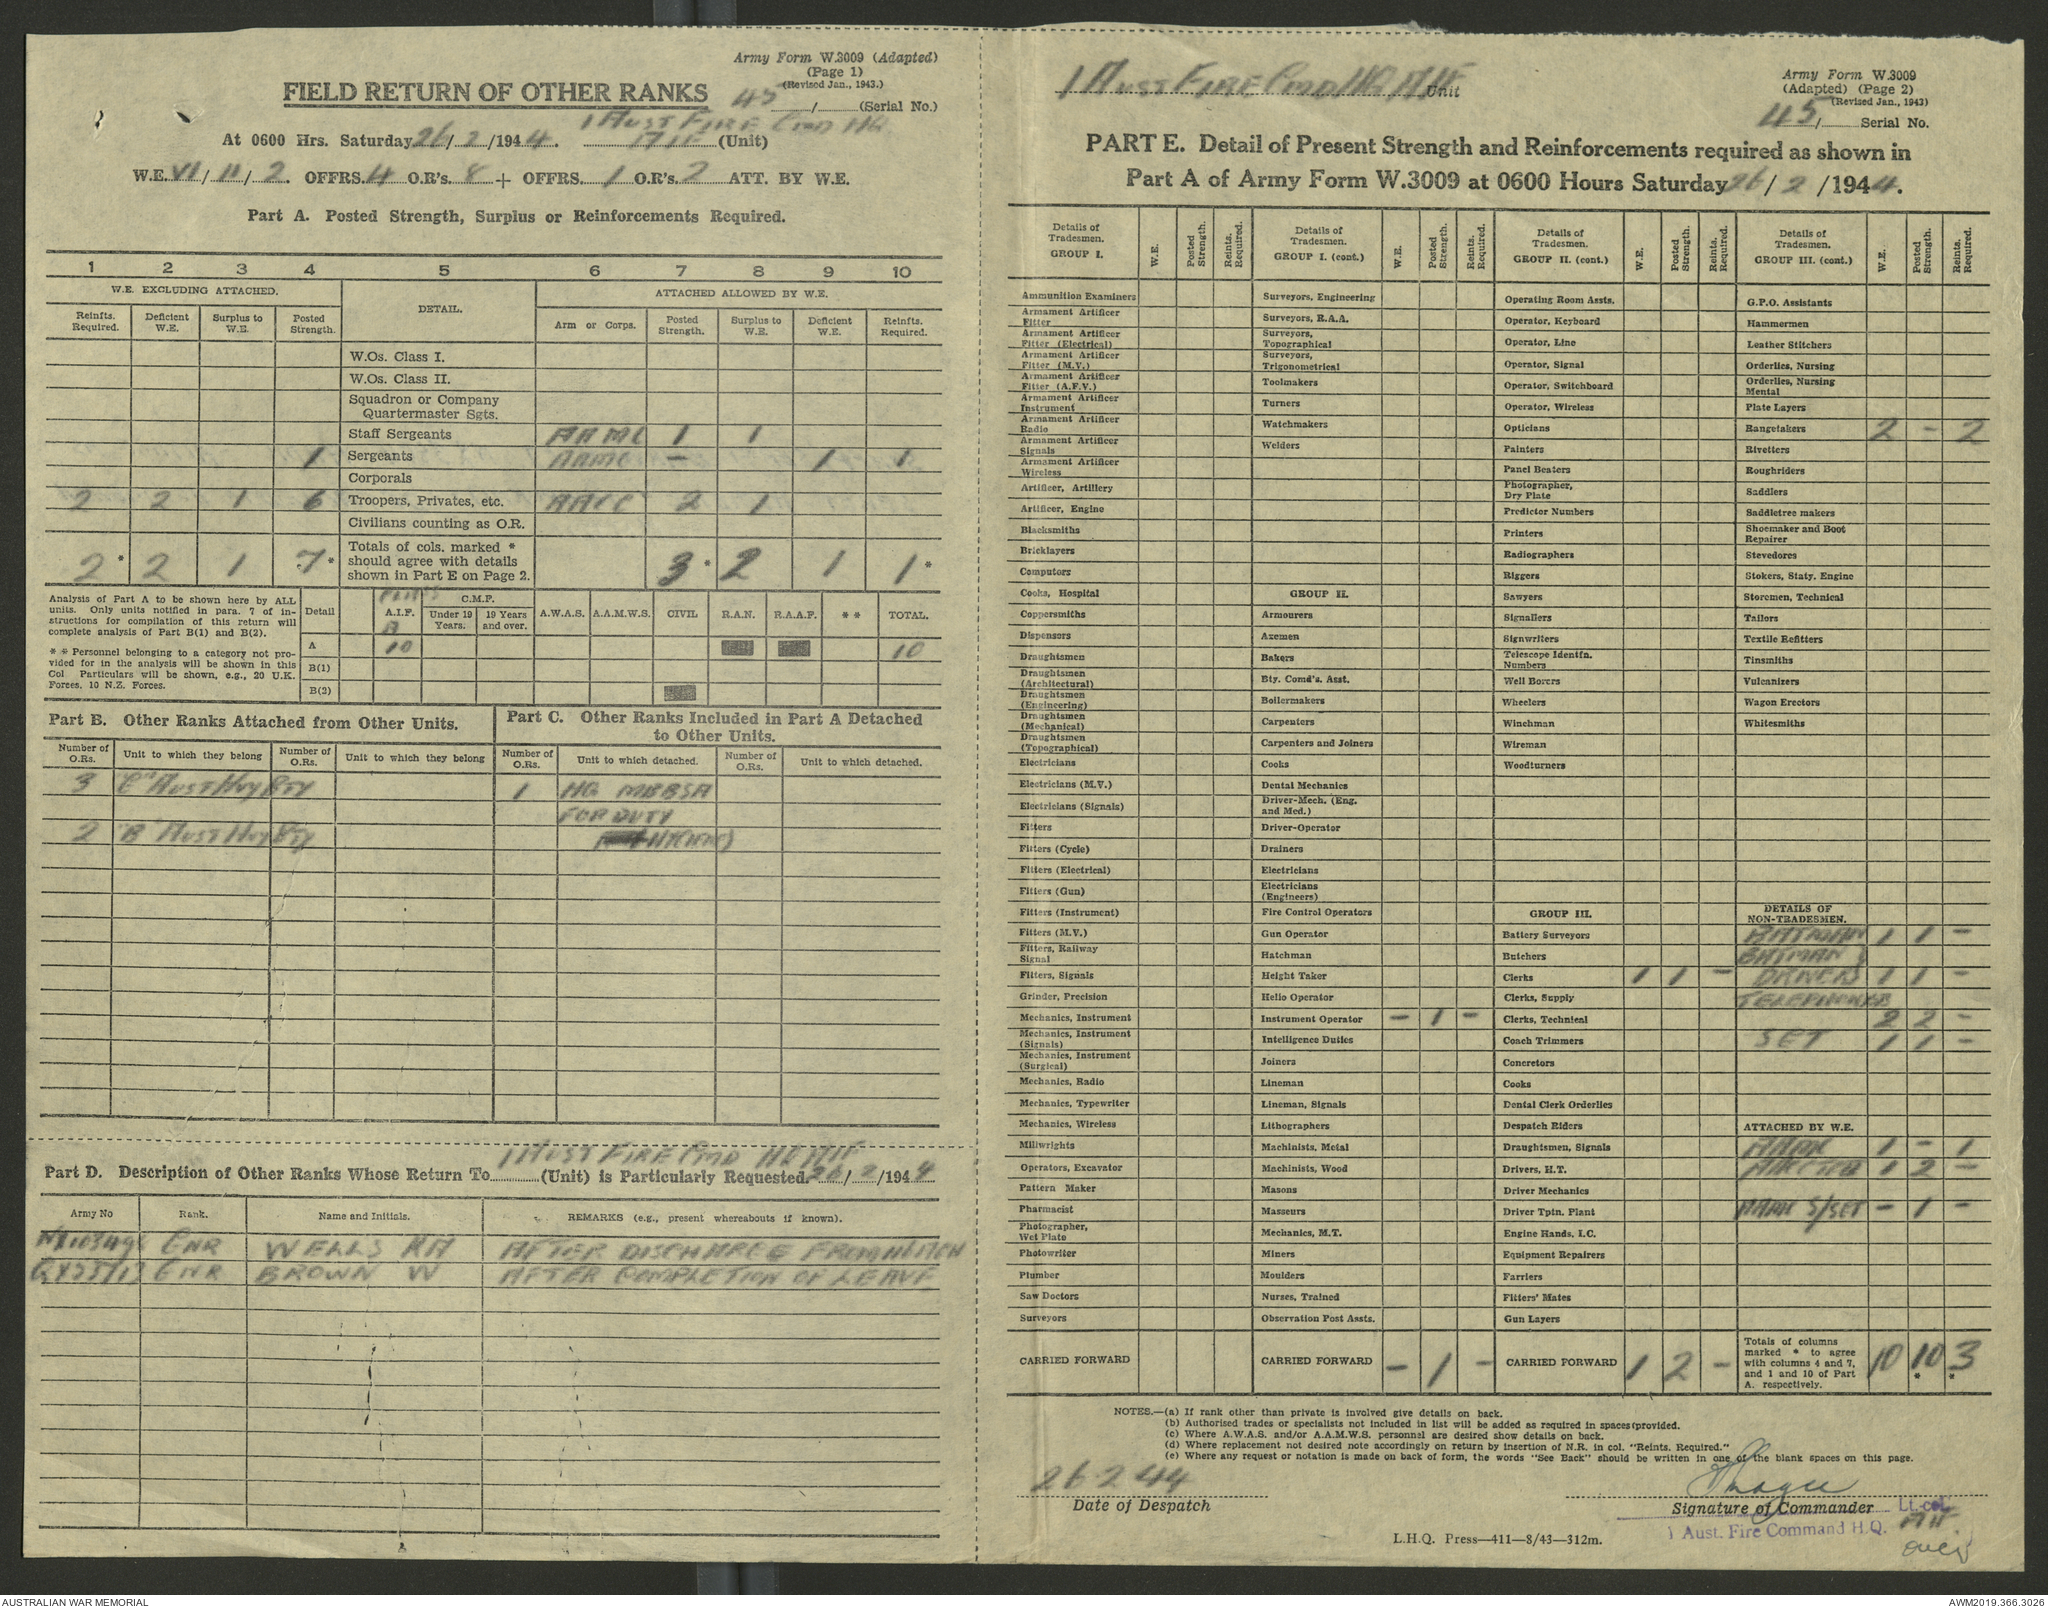 Army Form W.3009 (Adapted)
(Page 1)
(Revised Jan., 1943.)
FIELD RETURN OF OTHER RANKS
45 / (Serial No.)
1 AUST FIRE CMD HQ
At 0600 Hrs. Saturday 26/2/1944. AIF (Unit)
W.E. VI/II/2. OFFRS. 4 O.R's. 8 + OFFRS. 1 O.R's. 2 ATT. BY W.E.
Part A. Posted Strength, Surplus or Reinforcements Required.
1 2 3 4 5 6 7 8 9 10
W.E. EXCLUDING ATTACHED. DETAIL. ATTACHED ALLOWED BY W.E.
Reinfts. Required. Deficient W.E. Surplus to W.E. Posted Strength. Arm or Corps. Posted Strength. Surplus to W.E. Deficient W.E. Reinfts. Required.
W.Os. Class I.
W.Os. Class II.
Squadron or Company
Quartermaster Sgts.
Staff Sergeants AAMC 1 1
1 Sergeants AAMC - 1 1
Corporals
2 2 1 6 Troopers, Privates, etc. AACC 2 1
Civilians counting as O.R.
2* 2 1 7* Totals of cols. marked * should agree with details shown in Part E on Page 2. 3* 2 1 1*
Analysis of Part A to be shown here by ALL units. Only units notified in para. 7 of instructions for compilation of this return will complete analysis of Part B(1) and B(2).
* * Personnel belonging to a category not provided for in the analysis will be shown in this Col Particulars will be shown, e.g., 20 U.K. Forces, 10 N.Z. Forces.
Detail A.I.F. C.M.F. Under 19 Years. 19 Years and over. A.W.A.S. A.A.M.W.S. CIVIL R.A.N. R.A.A.F. * * TOTAL.
A 10 10
B(1)
B(2)
Part B. Other Ranks Attached from Other Units.
Number of O.Rs. Unit to which they belong Number of O.Rs. Unit to which they belong
3 "C" AUST HVY BTY
2 "B" AUST HVY BTY
Part C. Other Ranks Included in Part A Detached
to Other Units.
Number of O.Rs. Unit to which detached. Number of O.Rs. Unit to which detached.
1 HQ MBBSA
FOR DUTY
1 AUST FIRE CMD HQ AIF
Part D. Description of Other Ranks Whose Return To (Unit) is Particularly Requested. 26/2/1944
Army No Rank. Name and Initials. REMARKS (e.g., present whereabouts if known).
GNR WELLS RA AFTER DISCHARGE FROM
GNR BROWN W AFTER COMPLETION OF LEAVE
1 AUST FIRE CMD HQ AIF Unit
Army Form W.3009
(Adapted) (Page 2)
(Revised Jan., 1943)
45/ Serial No.
PART E. Detail of Present Strength and Reinforcements required as shown in
Part A of Army Form W.3009 at 0600 Hours Saturday 26/2/1944.
Details of Tradesmen. GROUP I. W.E. Posted Strength. Reints. Required.
Ammunition Examiners
Armament Artificer Fitter
Armament Artificer Fitter (Electrical)
Armament Artificer Fitter (M.V.)
Armament Artificer Fitter (A.F.V.)
Armament Artificer Instrument
Armament Artificer Radio
Armament Artificer Signals
Armament Artificer Wireless
Artificer, Artillery
Artificer, Engine
Blacksmiths
Bricklayers
Computors
Cooks, Hospital
Coppersmiths
Dispensers
Draughtsmen
Draughtsmen (Architectural)
Draughtsmen (Engineering)
Draughtsmen (Mechanical)
Draughtsmen (Topographical)
Electricians
Electricians (M.V.)
Electricians (Signals)
Fitters
Fitters (Cycle)
Fitters (Electrical)
Fitters (Gun)
Fitters (Instrument)
Fitters (M.V.)
Fitters, Railway Signal
Fitters, Signals
Grinder, Precision
Mechanics, Instrument
Mechanics, Instrument (Signals)
Mechanics, Instrument (Surgical)
Mechanics, Radio
Mechanics, Typewriter
Mechanics, Wireless
Millwrights
Operators, Excavator
Pattern Maker
Pharmacist
Photographer, Wet Plate
Photowriter
Plumber
Saw Doctors
Surveyors
CARRIED FORWARD
Details of Tradesmen. GROUP I. (cont.) W.E. Posted Strength. Reints. Required.
Surveyors, Engineering
Surveyors, R.A.A.
Surveyors, Topographical
Surveyors, Trigonometrical
Toolmakers
Turners
Watchmakers
Welders
GROUP II.
Armourers
Axemen
Bakers
Bty. Comd's. Asst.
Boilermakers
Carpenters
Carpenters and Joiners
Cooks
Dental Mechanics
Driver-Mech. (Eng. and Med.)
Driver-Operator
Drainers
Electricians
Electricians (Engineers)
Fire Control Operators
Gun Operator
Hatchman
Height Taker
Helio Operator
Instrument Operator - 1 -
Intelligence Duties
Joiners
Lineman
Lineman, Signals
Lithographers
Machinists, Metal
Machinists, Wood
Masons
Masseurs
Mechanics, M.T.
Miners
Moulders
Nurses, Trained
Observation Post Assts.
CARRIED FORWARD - 1 -
Details of Tradesmen. GROUP II. (cont.) W.E. Posted Strength. Reints. Required.
Operating Room Assts.
Operator, Keyboard
Operator, Line
Operator, Signal
Operator, Switchboard
Operator, Wireless
Opticians
Painters
Panel Beaters
Photographer, Dry Plate
Predictor Numbers
Printers
Radiographers
Riggers
Sawyers
Signallers
Signwriters
Telescope Identfn. Numbers
Well Borers
Wheelers
Winchman
Wireman
Woodturners
GROUP III.
Battery Surveyors
Butchers
Clerks 1 1 -
Clerks, Supply
Clerks, Technical
Coach Trimmers
Concretors
Cooks
Dental Clerk Orderlies
Despatch Riders
Draughtsmen, Signals
Drivers, H.T.
Driver Mechanics
Driver Tptn. Plant
Engine Hands, I.C.
Equipment Repairers
Farriers
Fitters' Mates
Gun Layers
CARRIED FORWARD 1 2 -
Details of Tradesmen. GROUP III. (cont.) W.E. Posted Strength. Reints. Required.
G.P.O. Assistants
Hammermen
Leather Stitchers
Orderlies, Nursing
Orderlies, Nursing Mental
Plate Layers
Rangetakers 2 - 2
Rivetters
Roughriders
Saddlers
Saddletree makers
Shoemaker and Boot Repairer
Stevedores
Stokers, Staty. Engine
Storemen, Technical
Tailors
Textile Refitters
Tinsmiths
Vulcanizers
Wagon Erectors
Whitesmiths
DETAILS OF NON-TRADESMEN.
BATMAN 1 1 -
BATMAN
DRIVERS 1 1 -
2 2 -
SGT 1 1 -
ATTACHED BY W.E.
1 - 1
1 2 -
AAMC S/SGT - 1 -
Totals of columns marked * to agree with columns 4 and 7, and 1 and 10 of Part A. respectively. 10 10* 3*
NOTES.—(a) If rank other than private is involved give details on back.
(b) Authorised trades or specialists not included in list will be added as required in spaces provided.
(c) Where A.W.A.S. and/or A.A.M.W.S. personnel are desired show details on back.
(d) Where replacement not desired note accordingly on return by insertion of N.R. in col. "Reints. Required."
(e) Where any request or notation is made on back of form, the words "See Back" should be written in one of the blank spaces on this page.
26 2 44
Date of Despatch
Signature of Commander Lt. col.
1 Aust. Fire Command H.Q. AIF
over
L.H.Q. Press—411—8/43—312m.
AUSTRALIAN WAR MEMORIAL
AWM2019.366.3026